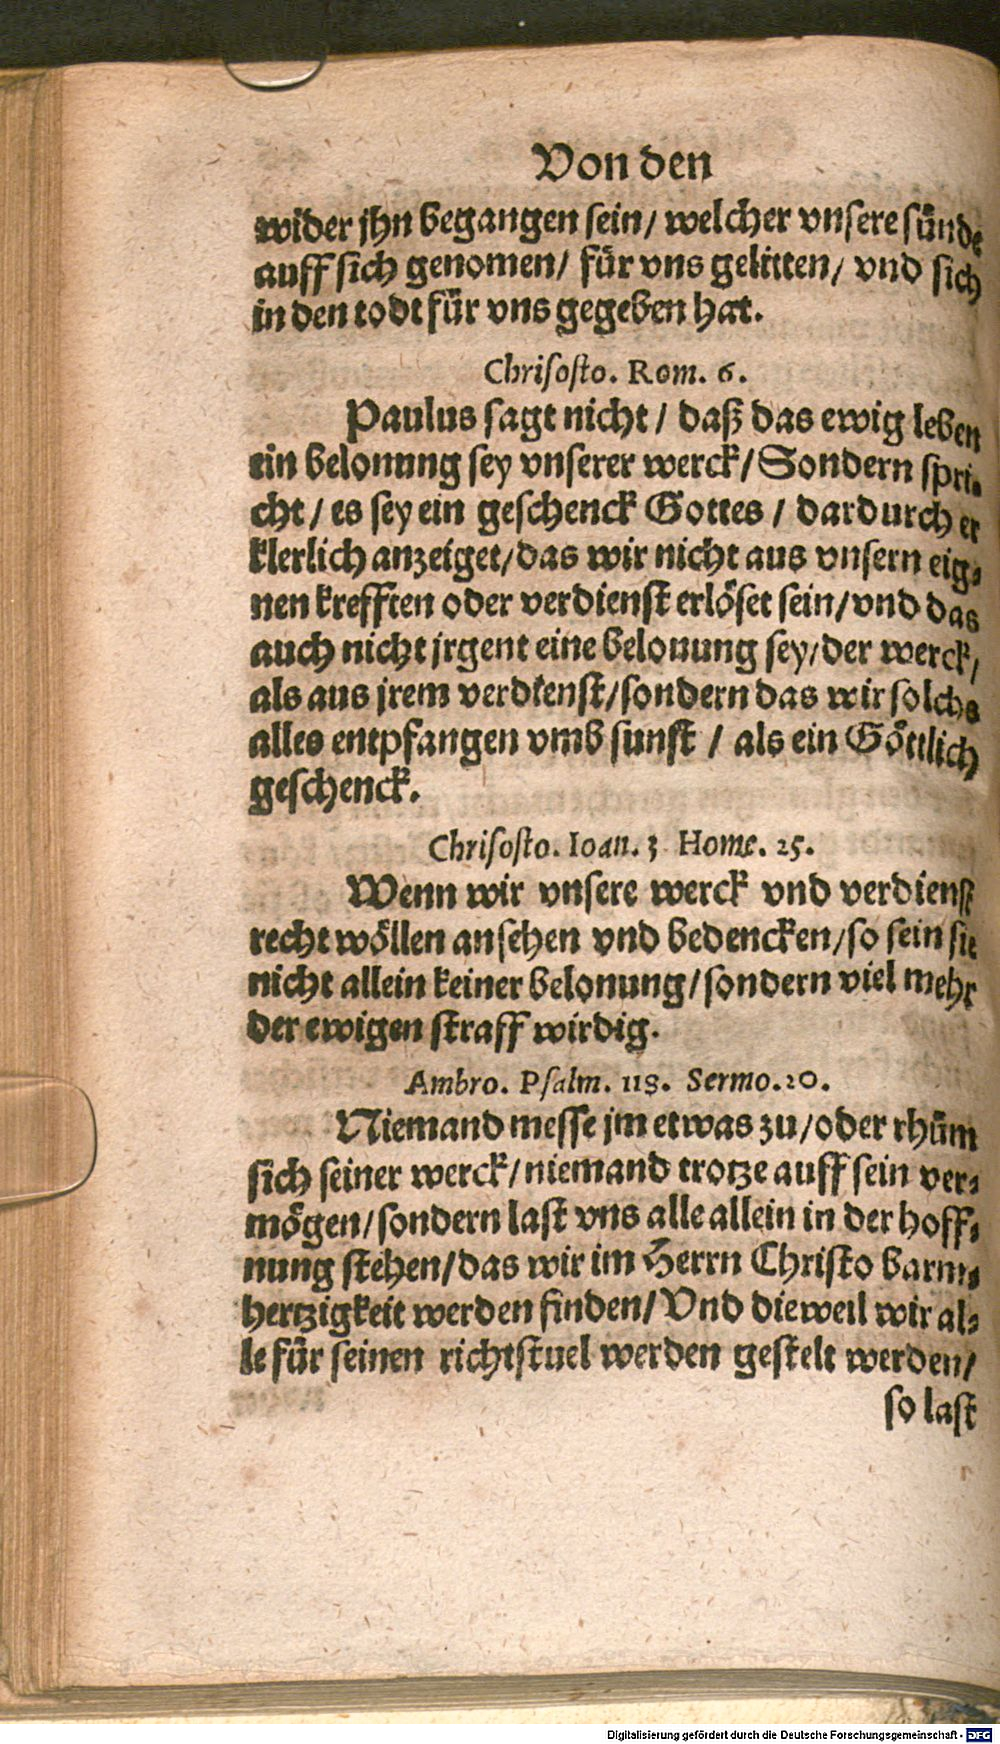 Von den
wider jhn begangen sein/ welcher vnsere sünde
auff sich genomen/ für vns gelitten/ vnd sich
in den todt für vns gegeben hat.
Chrisosto. Rom. 6.
Paulus sagt nicht / daß das ewig leben
ein belonung sey vnserer werck/ Sondern spri-
cht / es sey ein geschenck Gottes / dardurch er
klerlich anzeiget/ das wir nicht aus vnsern eig-
nen krefften oder verdienst erlöset sein/ vnd das
auch nicht jrgent eine belonung sey/ der werck/
als aus jrem verdienst/ sondern das wir solchs
alles entpfangen vmb sunst / als ein Göttlich
geschenck.
Chrisosto. Ioan. 3 Home. 25.
Wenn wir vnsere werck vnd verdienst
recht wöllen ansehen vnd bedencken/ so sein sie
nicht allein keiner belonung/ sondern viel mehr
der ewigen straff wirdig.
Ambro. Psalm. 118. Sermo. 20.
Niemand messe jm etwas zu/ oder rhüm
sich seiner werck/ niemand trotze auff sein ver-
mögen/ sondern last vns alle allein in der hoff-
nung stehen/ das wir im Herrn Christo barm-
hertzigkeit werden finden/ Vnd dieweil wir al-
le für seinen richtstuel werden gestelt werden/
so last
Digitalisierung gefördert durch die Deutsche Forschungsgemeinschaft - DFG